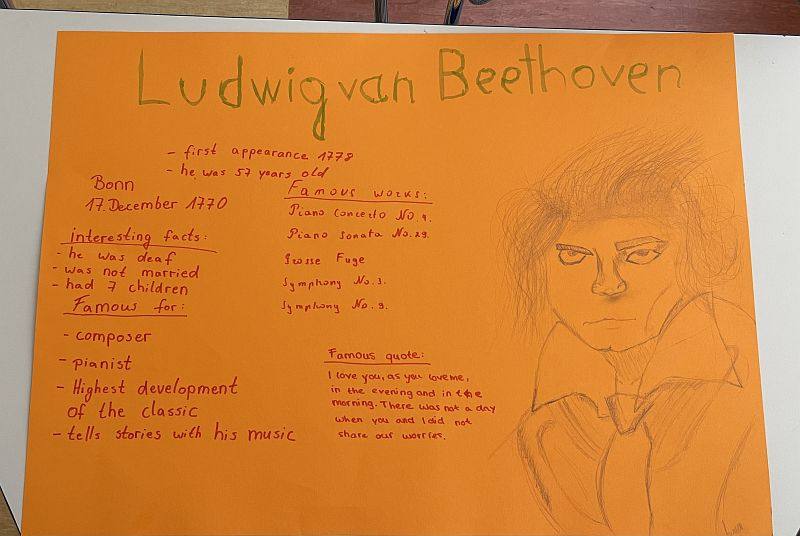 Ludwig van Beethoven
- first appearance 1778
- he was 57 years old
Bonn
17. December 1770
interesting facts:
- he was deaf
- was not married
- had 7 children
Famous for:
- composer
- pianist
- Highest development
of the classic
- tells stories with his music
Famous works:
Piano Concerto No. 4.
Piano Sonata No. 29.
Grosse Fuge
Symphony No. 3.
Symphony No. 9.
Famous quote:
I love you, as you love me,
in the evening and in the
morning. There was not a day
when you and I did not
share our worries.